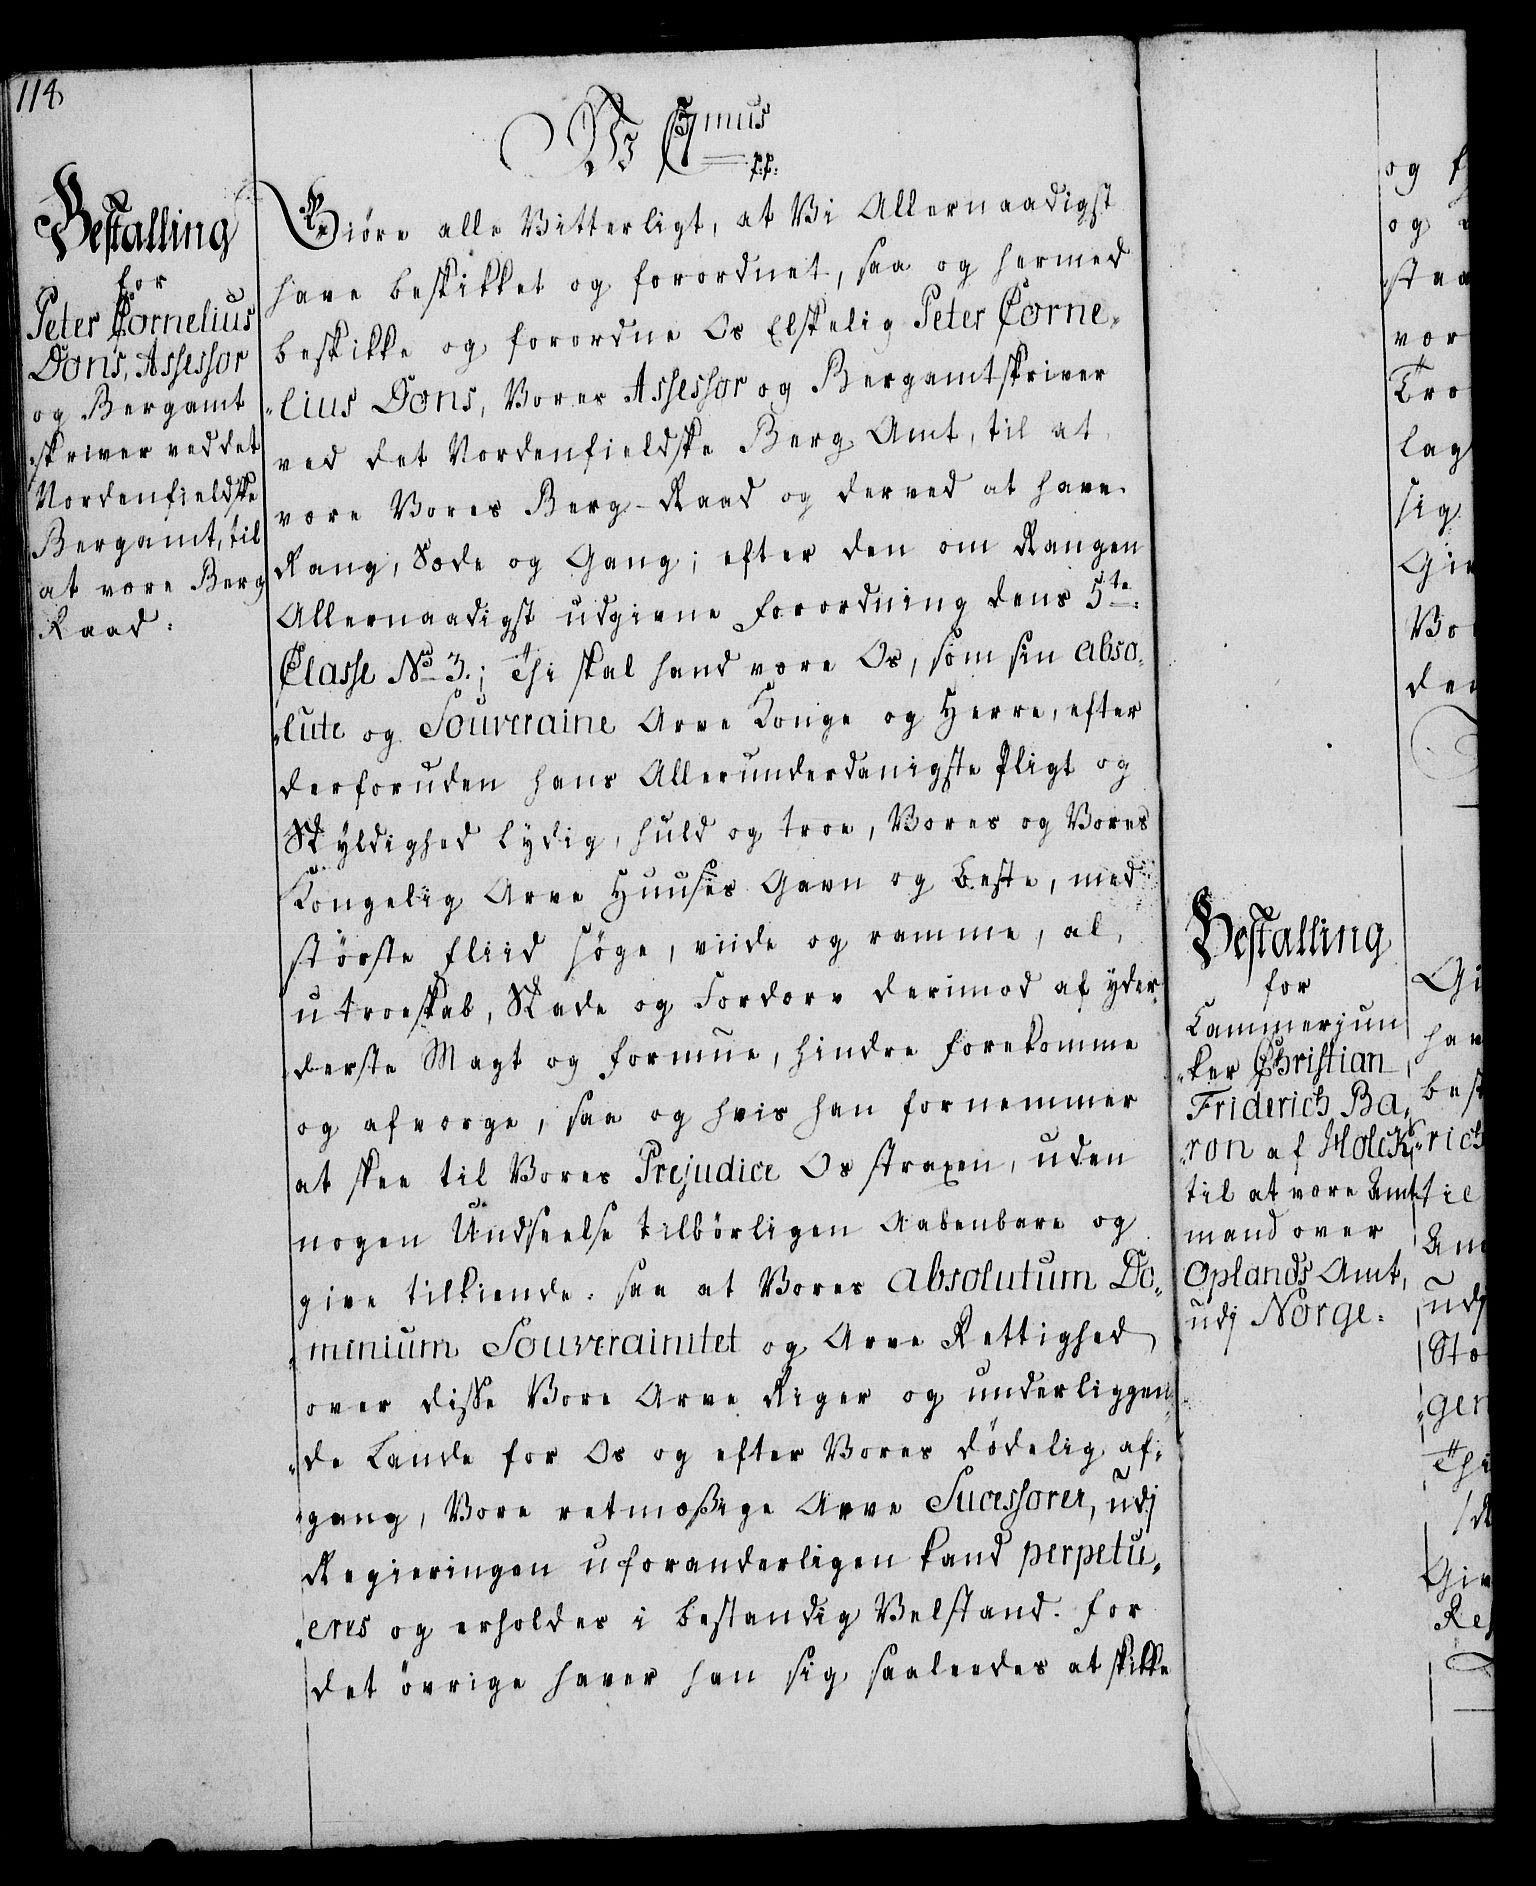 114
Vi C7mus
p.p.
Bestalling
for
Peter Cornelius
Dons, Assessor
og Bergamt
skriver ved det
Nordenfieldske
Bergamt, til
at være Berg
Raad.
Giöre alle Vitterligt, at Vi Allernaadigst
have beskikket og forordnet, saa og hermed
beskikke og forordne Os Elskelig Peter Corne-
lius Dons, Vores Assessor og Bergamtskriver
ved det Nordenfieldske Berg Amt, til at
være Vores Berg-Raad og derved at have
Rang, Sæde og Gang; efter den om Rangen
Allernaadigst udgivne Forordning dens 5te
Classe No 3.; Thi skal hand være Os, som sin abso-
lute og Souveraine Arve Konge og Herre, efter
derforuden hans Allerunderdanigste Pligt og
Skyldighed lydig, huld og troe, Vores og Vores
Kongelig Arve Huuses Gavn og Beste, med
störste Fliid söge, viide og ramme, al
utroeskab, Skade og Fordærv derimod af yder
derste Magt og formue, hindre forekomme
og afværge, saa og hvis han fornemmer
at skee til Vores Prejudice Os straxen, uden
nogen Undseelse tilbörligen Aabenbare og
give tilkiende. saa at Vores absolutum Do-
minium Souverainitet og Arve Rettighed
over disse Vore Arve Riger og underliggen
de Lande for Os og efter Vores dödelig af-
gang, Vore retmæßige Arve Sucessorer, udj
Regieringen uforanderligen kand perpetu-
eres og erholdes i bestandig Velstand. for
det övrige haver han sig saaledes at skikke
Bestalling
for
Cammerjun
ker Christian
Friderich Ba-
ron af Holck
til at være Amt
mand over
Oplands Amt,
udj Norge.
og
og
staa
vor
Tro
lag
sig
Giv
Vo
den
Gi
hav
besk
rich
til
Am
udj
Sto
gen
Thi
Giv
Res